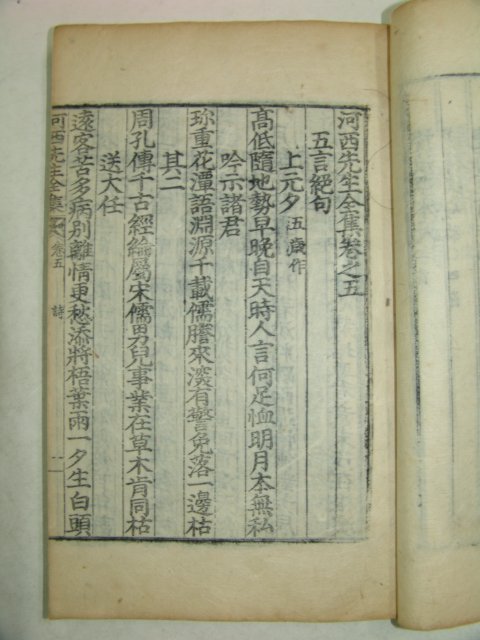 河西先生全集卷之五
五言絕句
上元夕 五歲作
高低隨地勢早晚自天時人言何足恤明月本無私
吟示諸君
珍重花潭語淵源千載儒謄來深有警免落一邊枯
其二
周孔傳千古經綸屬宋儒男兒事業在草木肯同枯
送大任
遠客苦多病別離情更愁添將梧葉雨一夕生白頭
河西先生全集 卷五 詩 一